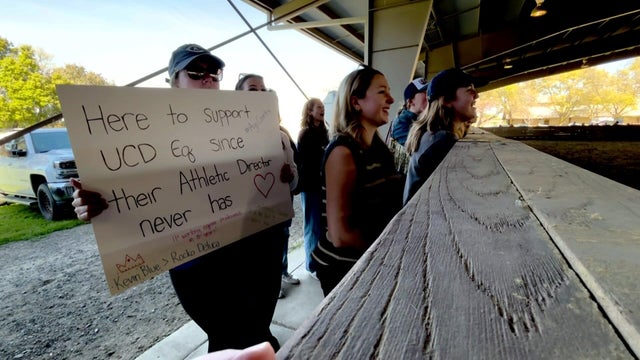 Here to support
UCD Eq since
their Athletic Director
never has
Kevin Blue > Rocko DeLuca